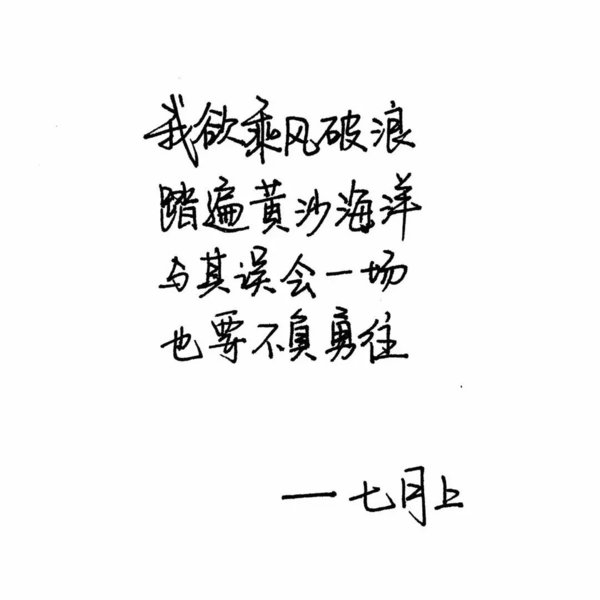 我欲乘风破浪
踏遍黄沙海洋
与其误会一场
也要不负勇往
—七月上